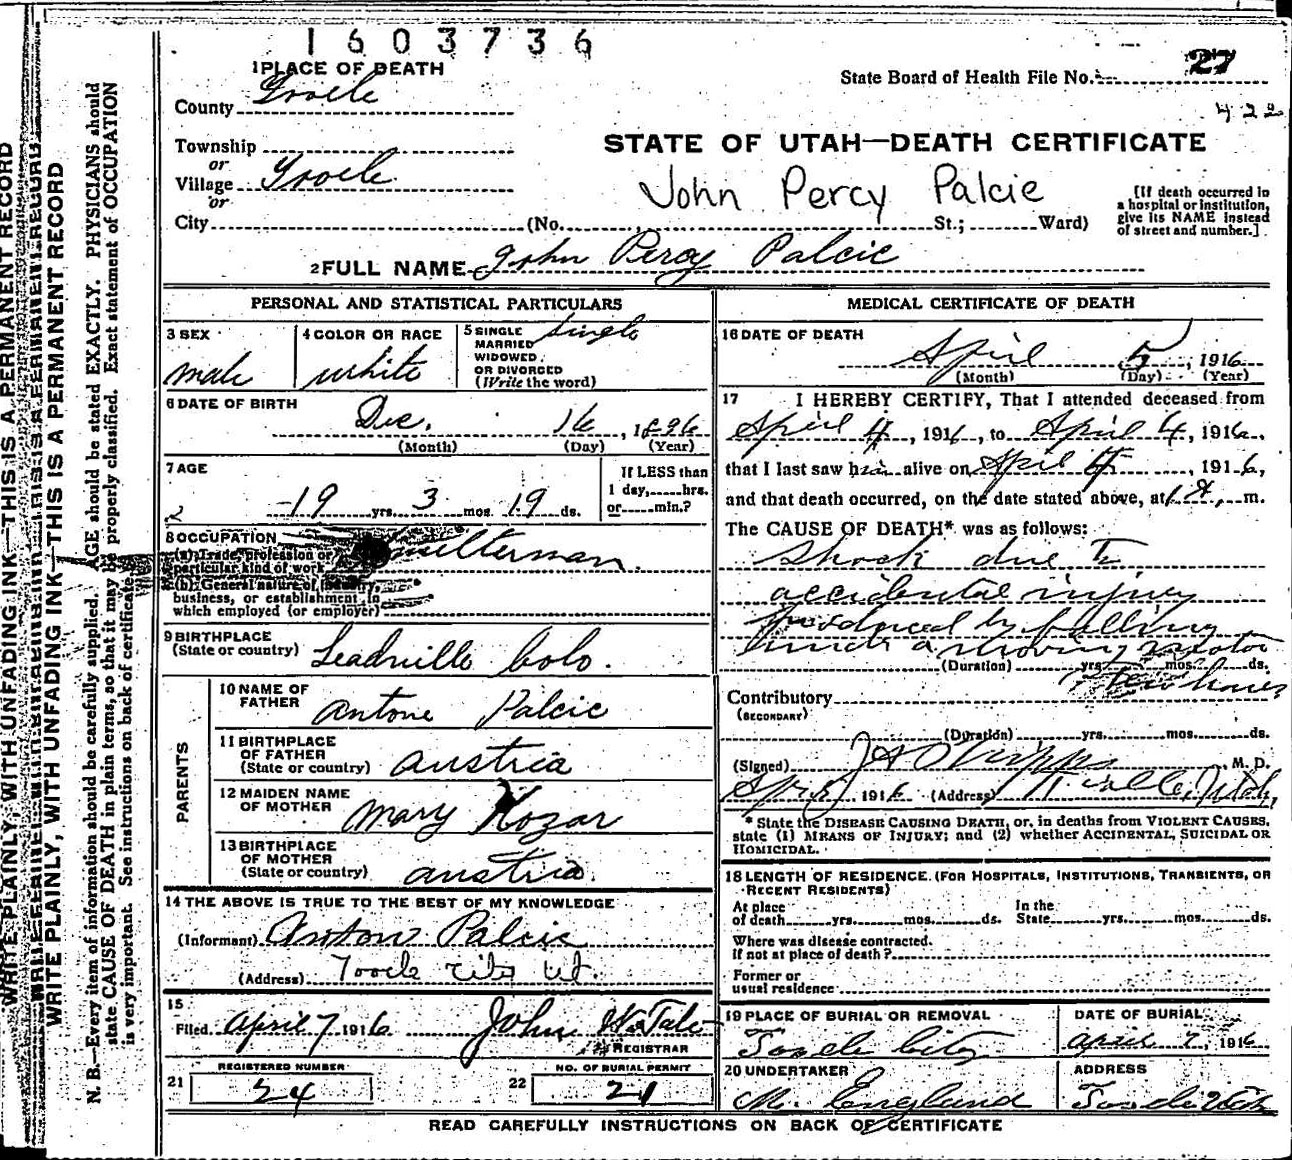 1603736
1 PLACE OF DEATH
County Tooele
State Board of Health File No. 27
422
Township
or
Village Tooele
or
City (No. St.; Ward)
STATE OF UTAH—DEATH CERTIFICATE
John Percy Palcic
[If death occurred in
a hospital or institution,
give its NAME instead
of street and number.]
2 FULL NAME John Percy Palcic
PERSONAL AND STATISTICAL PARTICULARS
3 SEX
male
4 COLOR OR RACE
white
5 SINGLE
MARRIED
WIDOWED
OR DIVORCED
(Write the word)
Single
6 DATE OF BIRTH
Dec. 16, 1896
(Month) (Day) (Year)
7 AGE
19 yrs. 3 mos. 19 ds.
If LESS than
1 day, hrs.
or min.?
8 OCCUPATION
(a) Trade, profession or
particular kind of work
Smelterman
(b) General nature of industry,
business, or establishment in
which employed (or employer)
9 BIRTHPLACE
(State or country)
Leadville Colo.
PARENTS
10 NAME OF
FATHER
Antone Palcic
11 BIRTHPLACE
OF FATHER
(State or country)
Austria
12 MAIDEN NAME
OF MOTHER
Mary Kozar
13 BIRTHPLACE
OF MOTHER
(State or country)
Austria
14 THE ABOVE IS TRUE TO THE BEST OF MY KNOWLEDGE
(Informant) Anton Palcic
(Address) Tooele City Ut.
15
Filed April 7 1916 John W. Tate
REGISTRAR
21 REGISTERED NUMBER
24
22 NO. OF BURIAL PERMIT
21
MEDICAL CERTIFICATE OF DEATH
16 DATE OF DEATH
April 5, 1916
(Month) (Day) (Year)
17 I HEREBY CERTIFY, That I attended deceased from
April 4, 1916, to April 4, 1916,
that I last saw him alive on April 4, 1916,
and that death occurred, on the date stated above, at m.
The CAUSE OF DEATH* was as follows:
Shock due to
accidental injury
produced by falling
under a moving motor
(Duration) yrs. mos. ds.
few hours
Contributory
(SECONDARY)
(Duration) yrs. mos. ds.
(Signed) M. D.
Apr 5, 1916 (Address) Tooele, Utah,
* State the DISEASE CAUSING DEATH, or, in deaths from VIOLENT CAUSES,
state (1) MEANS OF INJURY; and (2) whether ACCIDENTAL, SUICIDAL OR
HOMICIDAL.
18 LENGTH OF RESIDENCE. (FOR HOSPITALS, INSTITUTIONS, TRANSIENTS, OR
RECENT RESIDENTS)
At place
of death yrs. mos. ds.
In the
State yrs. mos. ds.
Where was disease contracted.
If not at place of death?
Former or
usual residence
19 PLACE OF BURIAL OR REMOVAL
Tooele City
DATE OF BURIAL
April 7, 1916
20 UNDERTAKER
M. England
ADDRESS
Tooele Utah
READ CAREFULLY INSTRUCTIONS ON BACK OF CERTIFICATE
WRITE PLAINLY, WITH UNFADING INK—THIS IS A PERMANENT RECORD
WRITE PLAINLY, WITH UNFADING INK—THIS IS A PERMANENT RECORD
N. B.—Every item of information should be carefully supplied. AGE should be stated EXACTLY. PHYSICIANS should
state CAUSE OF DEATH in plain terms, so that it may be properly classified. Exact statement of OCCUPATION
is very important. See instructions on back of certificate.